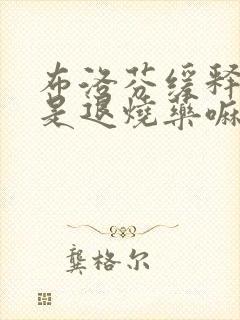 布洛芬缓释
是退烧药嘛
龚格尔